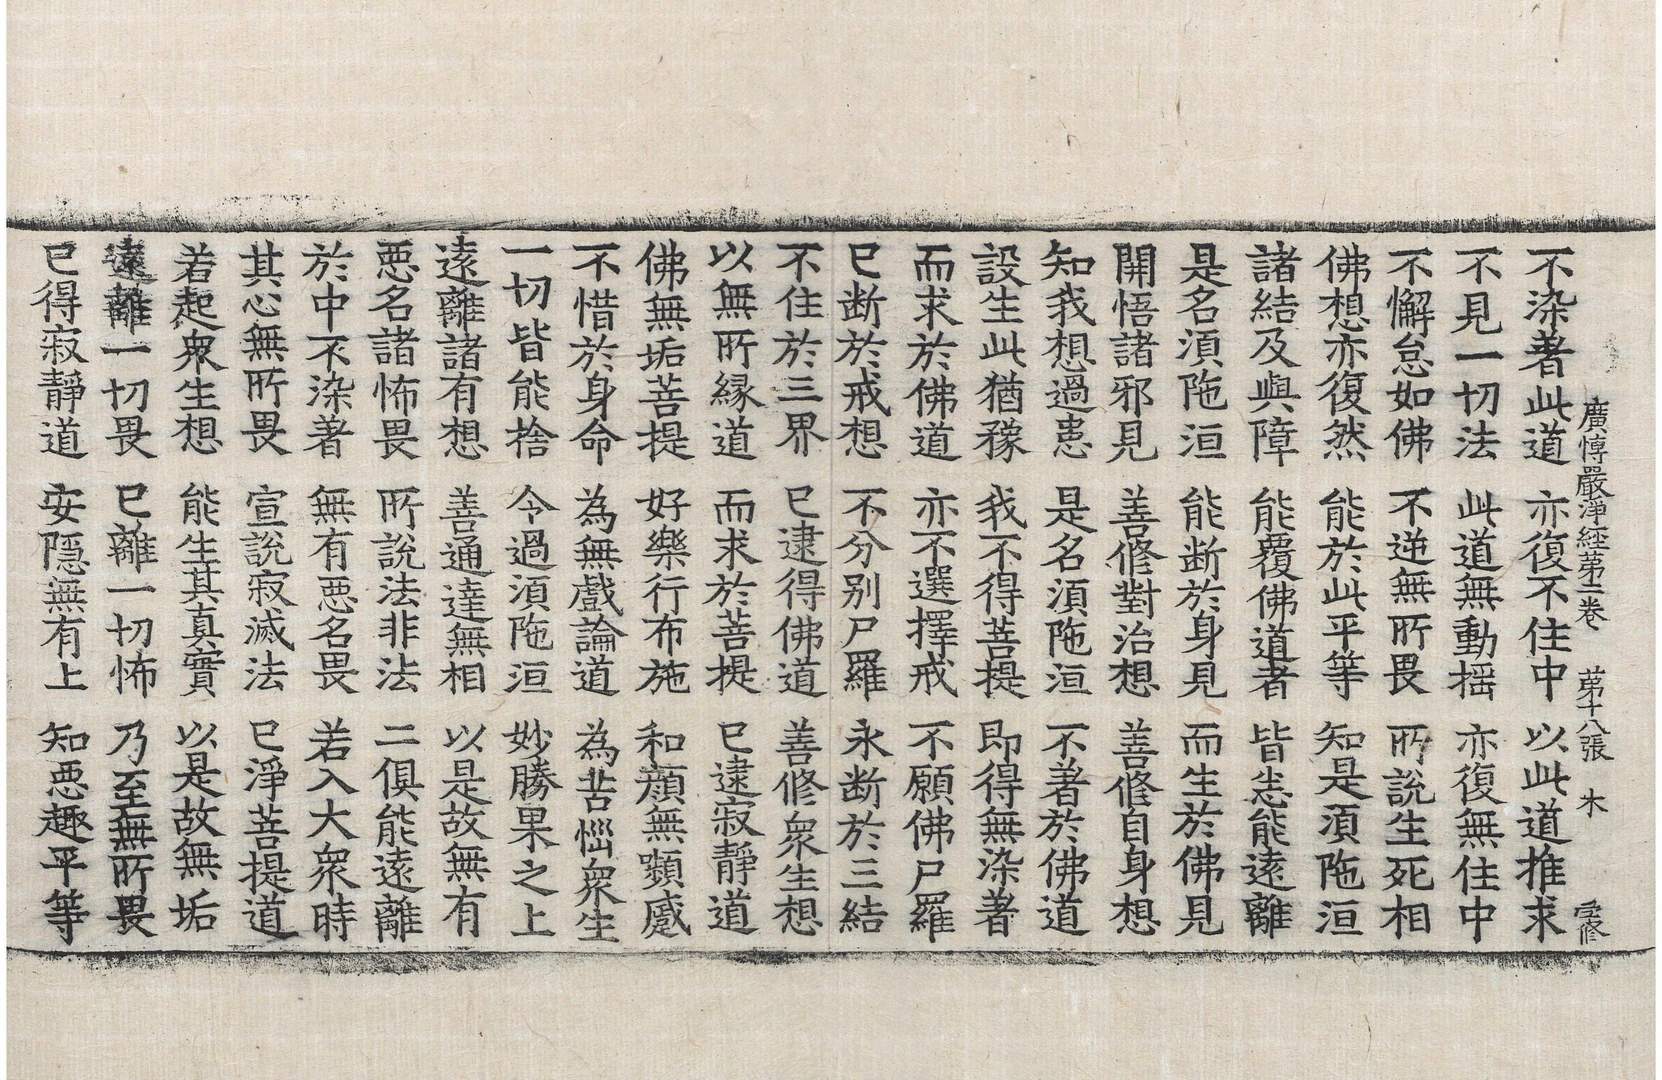 廣愽嚴淨經第二卷 第十八張 木
不染著此道 亦復不住中 以此道推求
不見一切法 此道無動揺 亦復無住中
不懈怠如佛 不逆無所畏 所說生死相
佛想亦復然 能於此平等 知是湏陁洹
諸結及與障 能覆佛道者 皆悉能遠離
是名湏陁洹 能断於身見 而生於佛見
開悟諸邪見 善修對治想 善修自身想
知我想過患 是名湏陁洹 不著於佛道
設生此猶豫 我不得菩提 即得無染著
而求於佛道 亦不選擇戒 不願佛尸羅
已断於戒想 不分別尸羅 永断於三結
不住於三界 已逮得佛道 善修衆生想
以無所縁道 而求於菩提 已逮寂靜道
佛無垢菩提 好樂行布施 和顔無嚬蹙
不惜於身命 為無戲論道 為苦惱衆生
一切皆能捨 今過湏陁洹 妙勝果之上
遠離諸有想 善通達無相 以是故無有
悪名諸怖畏 所說法非法 二俱能遠離
於中不染著 無有悪名畏 若入大衆時
其心無所畏 宣說寂滅法 已淨菩提道
若起衆生想 能生其真實 以是故無垢
遠離一切畏 已離一切怖 乃至無所畏
已得寂靜道 安隱無有上 知悪趣平等